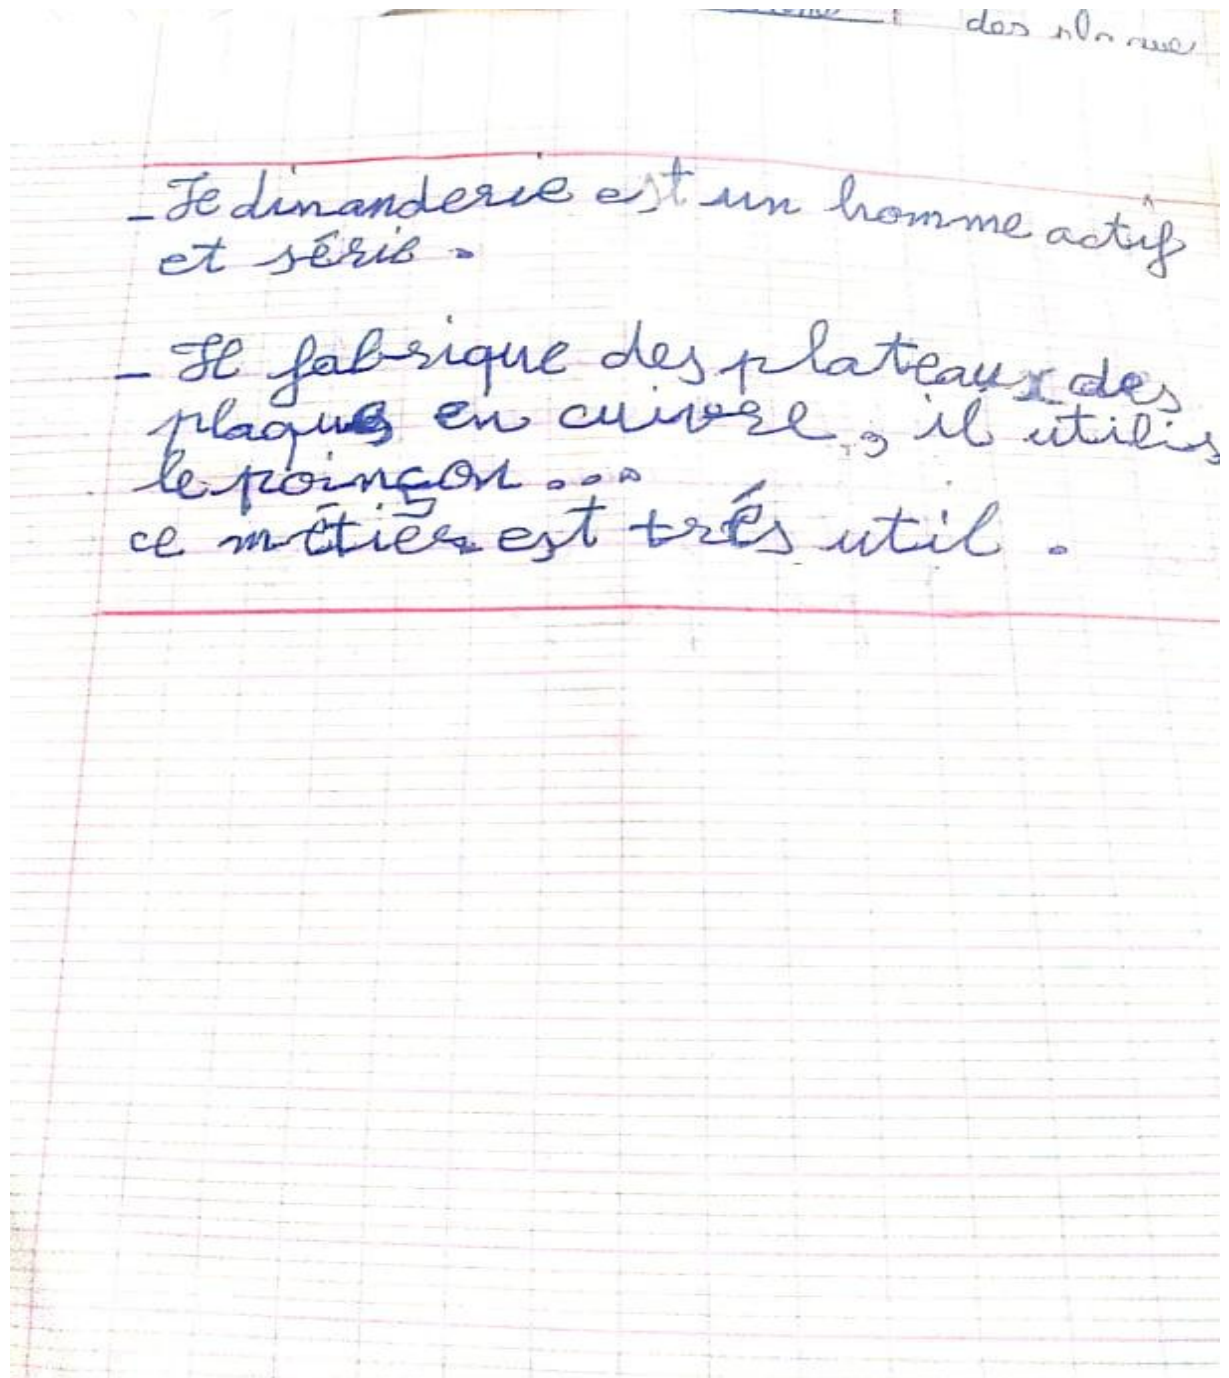 des
- Le dinanderie est un homme actif
et série.
- Il fabrique des plateaux des
plaques en cuivre, il utilis
le poinçon...
ce métier est trés util.